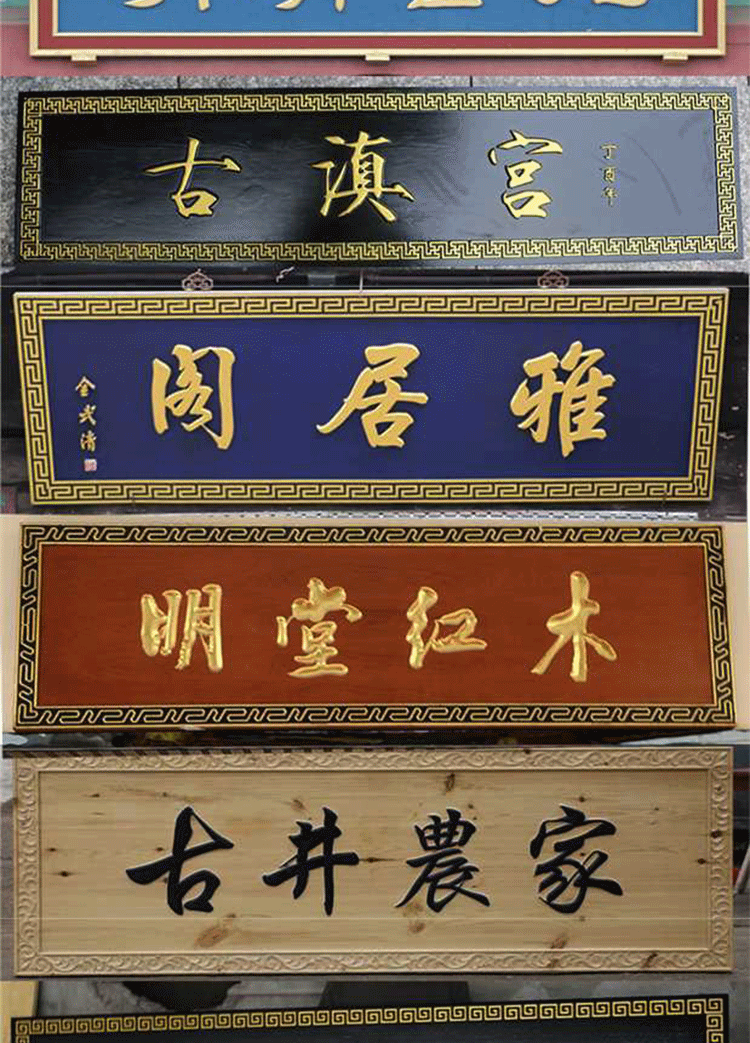 古滇宫
丁酉年
雅居阁
明堂红木
古井農家